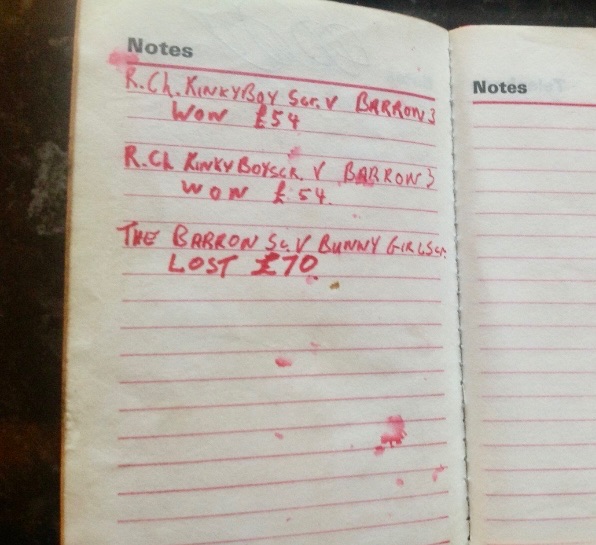 Notes
R.Ch. KINKYBOY Scr. V BARRON 3
WON £54
R.Ch KINKYBOY SCR. V BARRON 3
WON £54.
THE BARRON Sc. V BUNNY GIRL Scr.
LOST £70
Notes